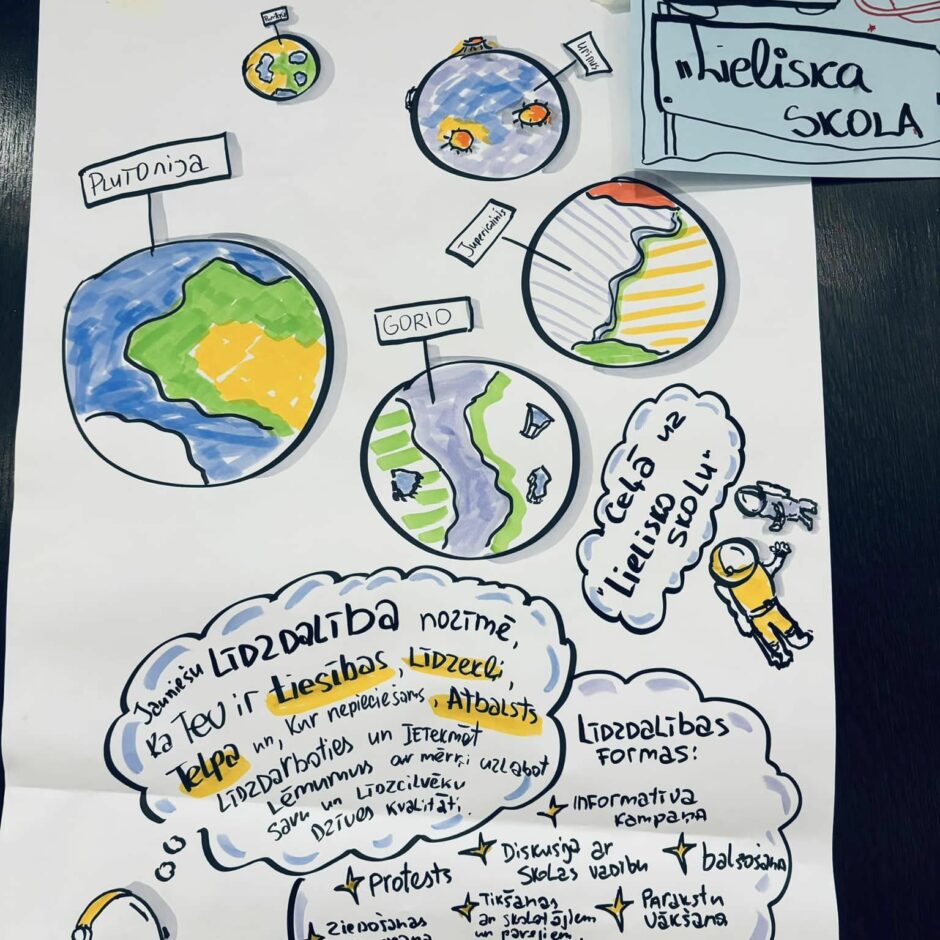 Plutonija
Urinus
„Lieliska
SKOLA"
GORIO
Ceļā uz
"Lielisko
SKOLU"
Jauniešu Līdzdalība nozīmē,
ka Tev ir Tiesības, Līdzekļi,
Telpa un, kur nepieciešams, Atbalsts
Līdzdarboties un Ietekmēt
Lēmumus ar mērķi uzlabot
savu un Līdzcilvēku
Dzīves kvalitāti.
Līdzdalības
Formas:
Informatīva
kampaņa
Diskusija ar
skolas vadību
balsošana
Protests
Tikšanās
ar skolotājiem
un
Parakstu
vākšana
Ziedošanas